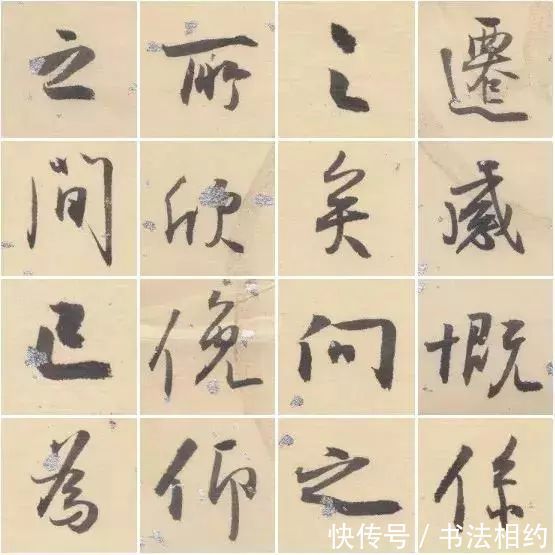 遷感慨係
之矣向之
所欣俛仰
之間已為
快传号 / 书法相约